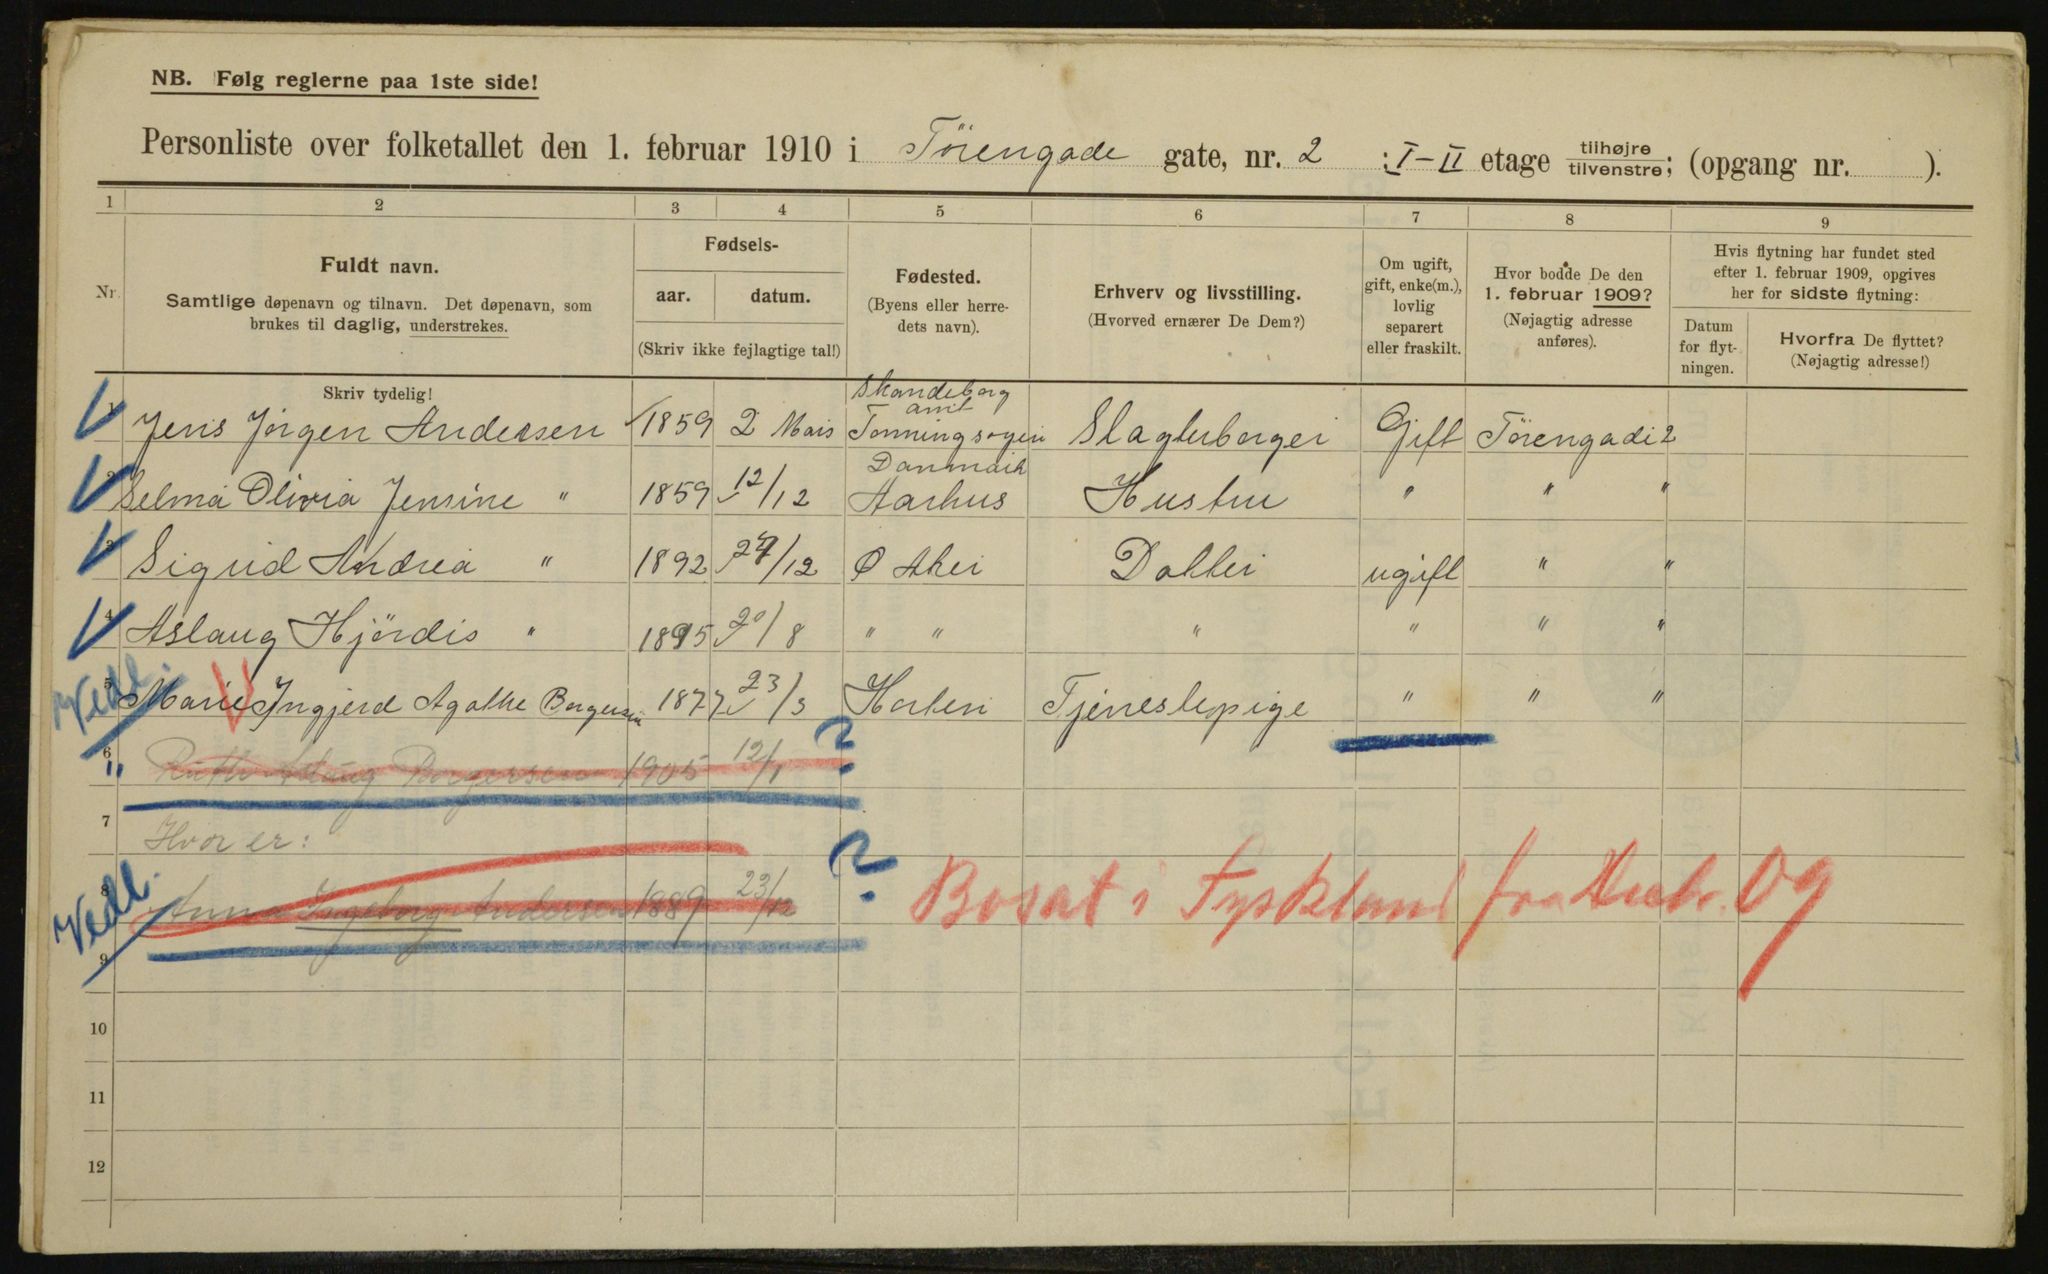 NB. Følg reglerne paa 1ste side!
Personliste over folketallet den 1. februar 1910 i Törengade gate, nr. 2 ; I-II etage tilhøjre tilvenstre; (opgang nr. ).
1 2 3 4 5 6 7 8 9
Nr.
Fuldt navn.
Samtlige døpenavn og tilnavn. Det døpenavn, som
brukes til daglig, understrekes.
Skriv tydelig!
Fødsels-
aar. datum.
(Skriv ikke fejlagtige tal!)
Fødested.
(Byens eller herre-
dets navn).
Erhverv og livsstilling.
(Hvorved ernærer De Dem?)
Om ugift,
gift, enke(m.),
lovlig
separert
eller fraskilt.
Hvor bodde De den
1. februar 1909?
(Nøjagtig adresse
anføres).
Hvis flytning har fundet sted
efter 1. februar 1909, opgives
her for sidste flytning:
Datum
for flyt-
ningen.
Hvorfra De flyttet?
(Nøjagtig adresse!)
Skandeborg
amt
1 Jens Jörgen Andersen 1859 2 Mais Tonning sogen Slagterborger Gift Törengade 2
Danmark
2 Selma Olivia Jensine " 1859 12/12 Aarhus Hustru " " "
3 Sigrid Andrea " 1892 24/12 Ø Aker Datter ugift " "
4 Aslaug Hjördis " 1895 20/8 " " " " " "
Vedl.
5 Marie Ingjerd Agathe Borgersen 1877 23/3 Horten Tjenestepige " " "
6 " Ruth Aslaug Borgersen 1905 12/1 ?
7 Hvor er:
Vedl.
8 Anna Ingeborg Andersen 1889 23/12 ? Bosat i Tyskland fra Decbr. 09
9
10
11
12